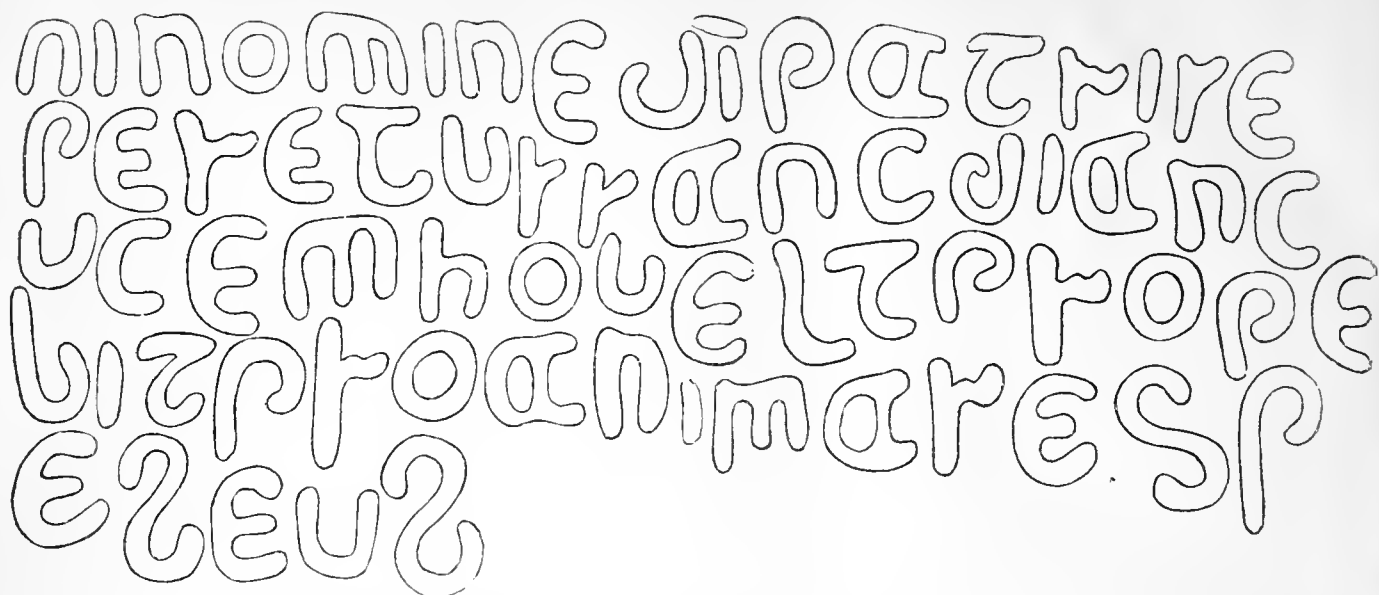 ninomine dī patris e
peretus sancdi anc
ucem houelt prope
bit pro anima res p
es eus